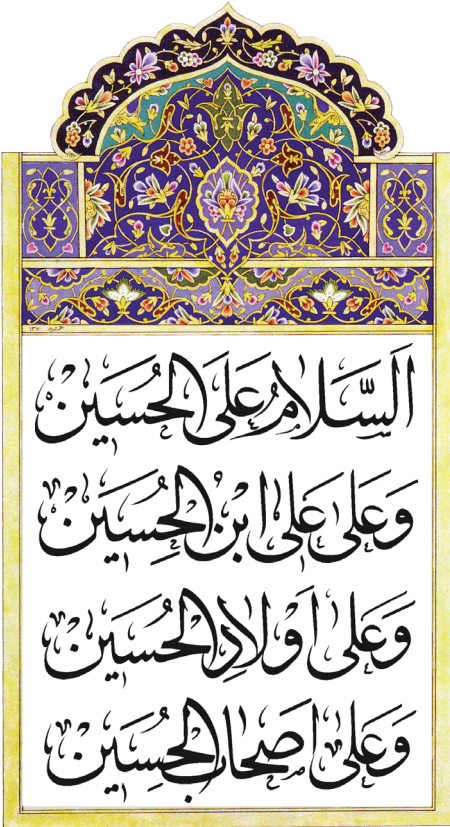 اَلسَّلَامُ عَلَى الحُسَین
وَعَلَى عَلى ابْنِ الحُسِیَن
وَعَلى اَوْلادِ الحُسَین
وَعَلى اَصحَابِ الحُسِیَن